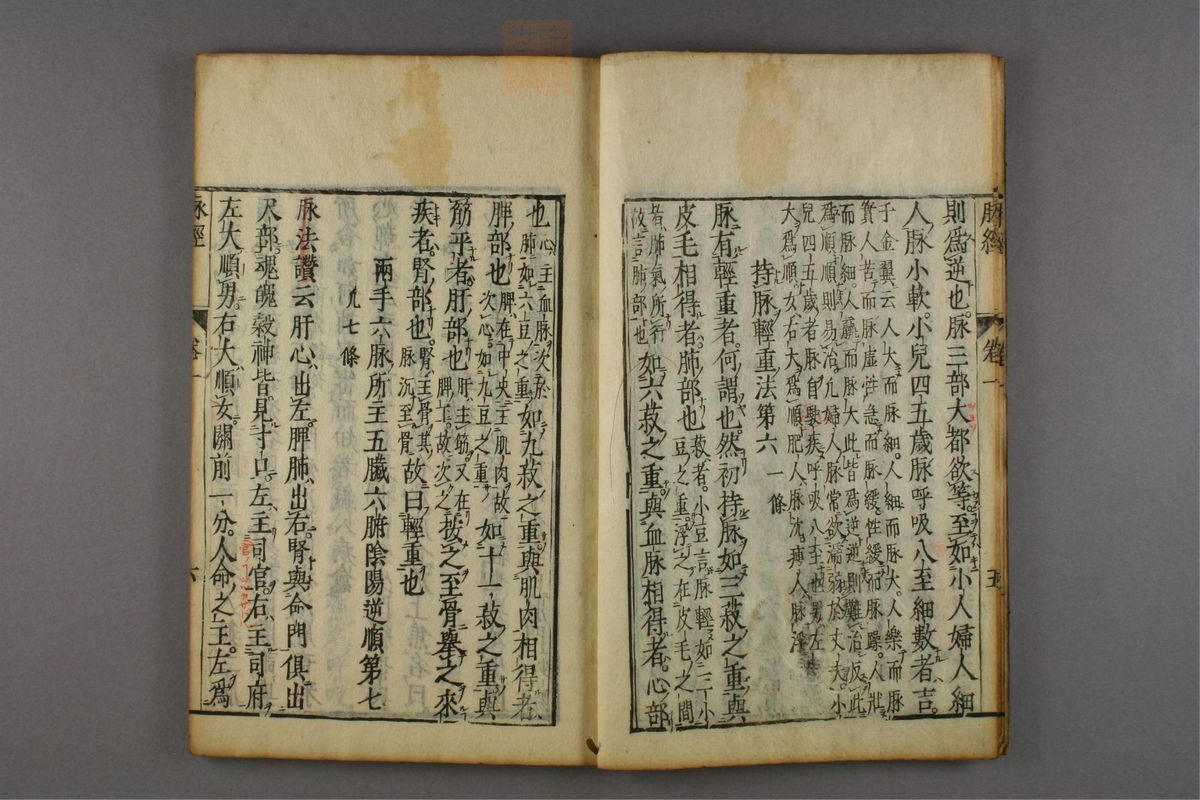 脉經　卷一　五
則爲逆也。脉三部大都欲等。至如小人婦人細
人脉小軟。小兒四五歲脉呼吸八至細數者吉。
千金翼云人大而脉細。人細而脉大。人樂而脉
實人苦而脉虛性急而脉緩。性緩而脉躁。人壯
而脉細。人羸而脉大此皆爲逆逆則難治反此
爲順順則易治凢婦人脉常欲濡弱於丈夫。小
兒四五歲者脉自駛疾呼吸八至也男左
大爲順。女右大爲順肥人脉沈瘦人脉浮
持脉輕重法第六　一條
脉有輕重者。何謂也。然初持脉如三菽之重與
皮毛相得者。肺部也菽者。小豆言脉輕如三小
豆之重。浮之在皮毛之間
者。肺氣所行
故言肺部也如六菽之重與血脉相得者。心部
也心主血脉次於
肺如六豆之重如九菽之重與肌肉相得者
脾部也脾在中央主肌肉故
次心。如九豆之重如十二菽之重與
筋平者。肝部也肝主筋。又在
脾下。故次之按之至骨舉之來
疾者。腎部也。腎主骨其
脉沉至骨故曰輕重也
兩手六脉所主五臟六腑陰陽逆順第七
凢七條
脉法讚云肝心出左。脾肺出右腎與命門俱出
尺部。魂魄穀神皆見寸口。左主司官。右主司府
左大順男。右大順女。關前一分。人命之主。左爲
脉經　卷一　六